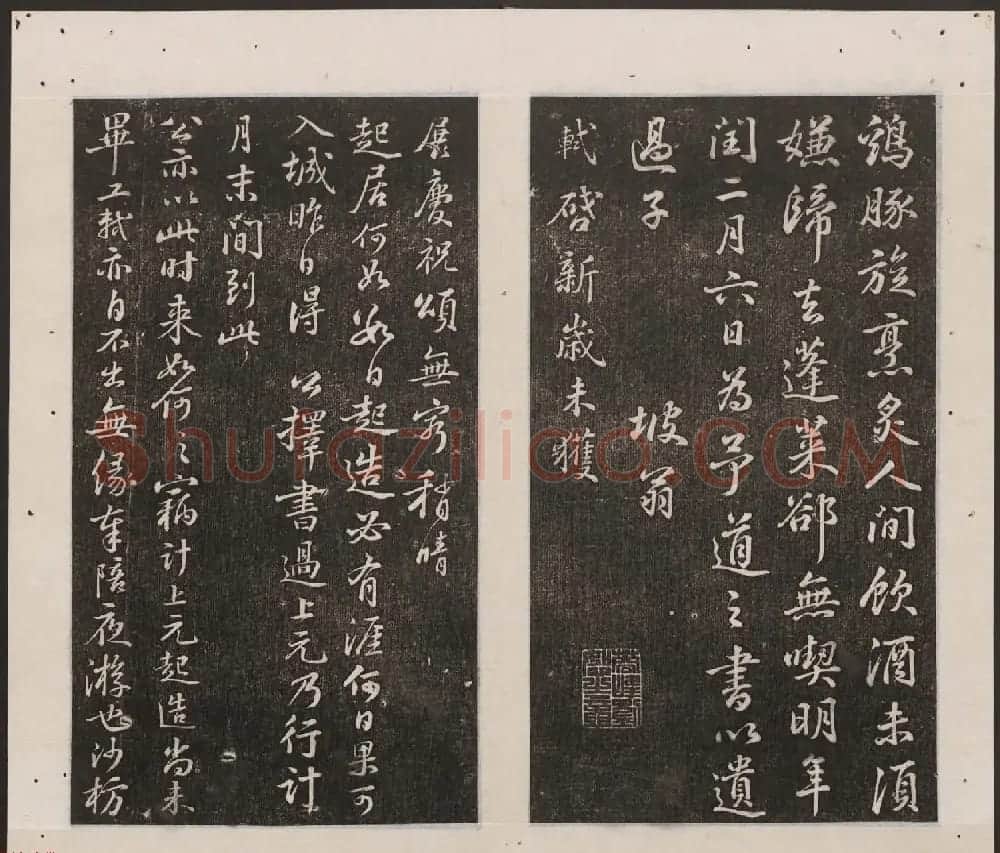 鵝豚旋烹炙人間飲酒未須
嫌歸去蓬萊卻無喫明年
閏二月六日為予道之書以遺
過子 坡翁
軾啓新歲未獲
展慶祝頌無窮稍晴
起居何如數日起造必有涯何日果可
入城昨日得 公擇書過上元乃行計
月末間到此
公亦以此時來如何〻竊計上元起造尚未
畢工軾亦自不出無緣奉陪夜游也沙枋
Shufaziliao.COM